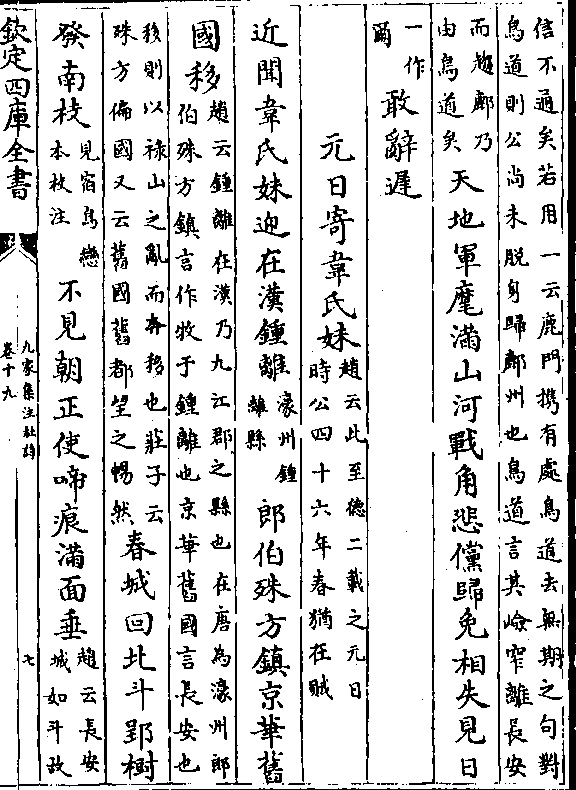 信不通矣若用一云鹿門携有處鳥道去無期之句對
鳥道則公尚未脫身歸鄜州也鳥道言其峻窄離長安
而趨鄜乃
由鳥道矣
天地軍麾滿山河戰角悲儻歸免相失見日
一作
爾
敢辭遲
元日寄韋氏妹
趙云此至德二載之元日
時公四十六年春猶在賊
近聞韋氏妹迎在漢鍾離
濠州鍾
離縣
郎伯殊方鎮京華舊
國移
趙云鍾離在漢乃九江郡之縣也在唐為濠州郎
伯殊方鎮言作牧于鍾離也京華舊國言長安也
移則以祿山之亂而奔移也莊子云
殊方偏國又云舊國舊都望之暢然
春城回北斗郢樹
發南枝
見宿鳥戀
本枝注
不見朝正使啼痕滿面垂
趙云長安
城如斗故
欽定四庫全書
九家集注杜詩
卷十九
七